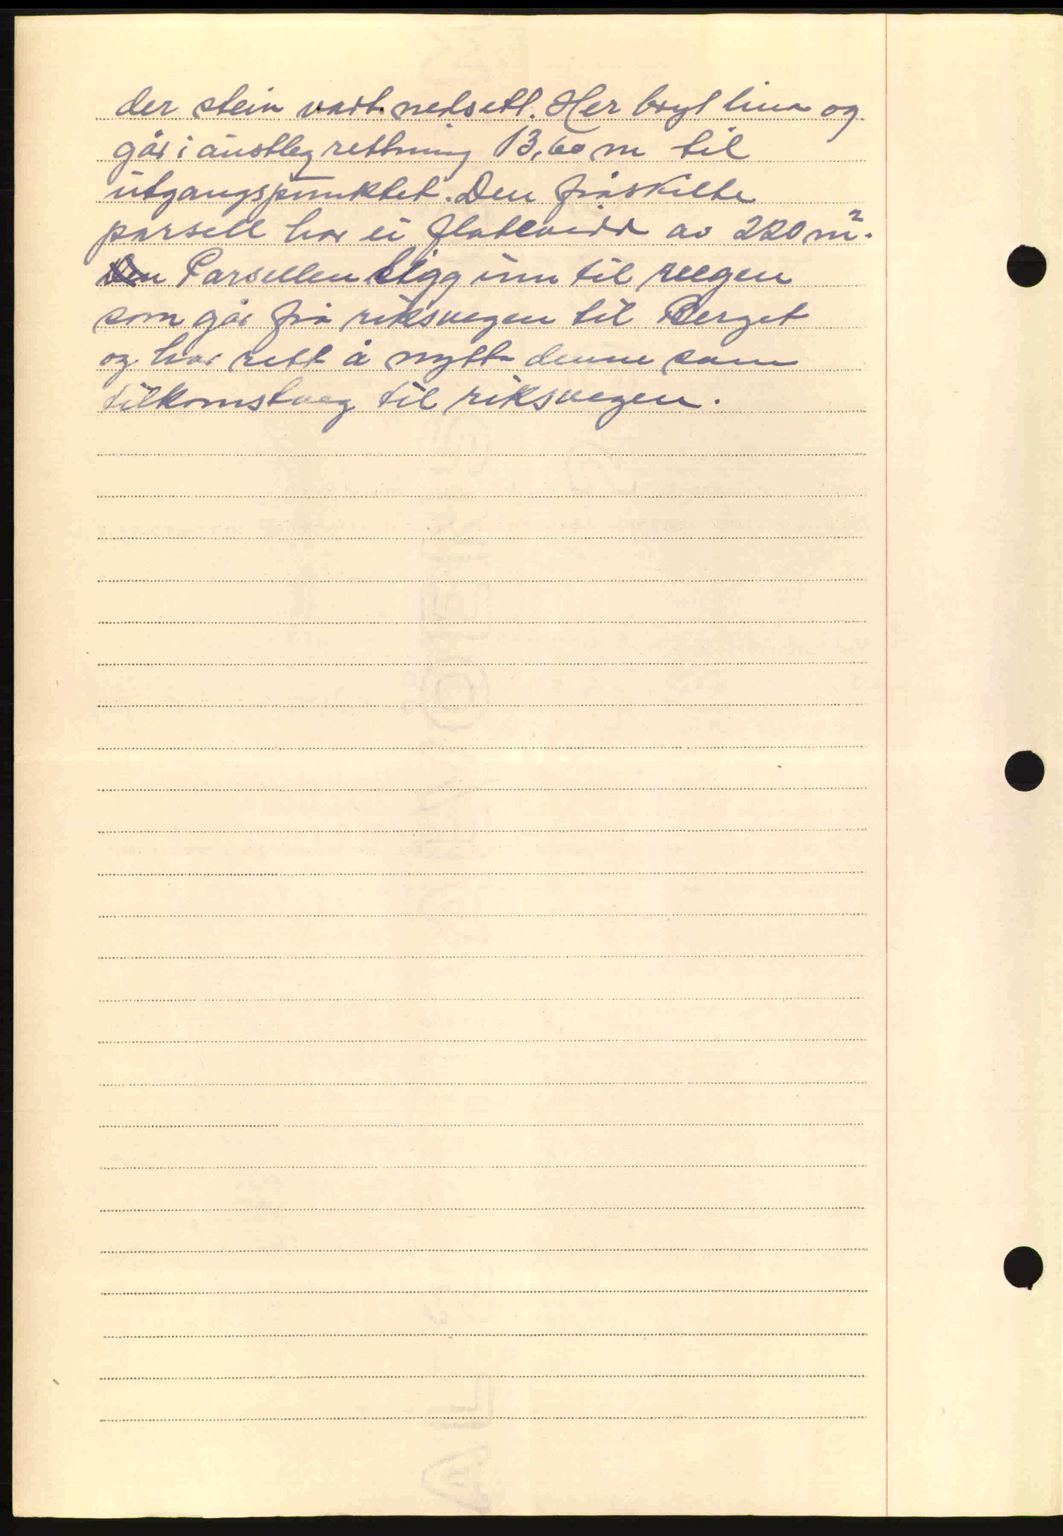 der stein vart nedsett. Her bryt lina og
går i austleg rettning 13,60 m til
utgangspunktet. Den fråskilte
parsell har ei flatevidd av 220 m².
Den Parsellen ligg inn til vegen
som går frå riksvegen til Berget
og har rett å nytte denne som
tilkomstveg til riksvegen.